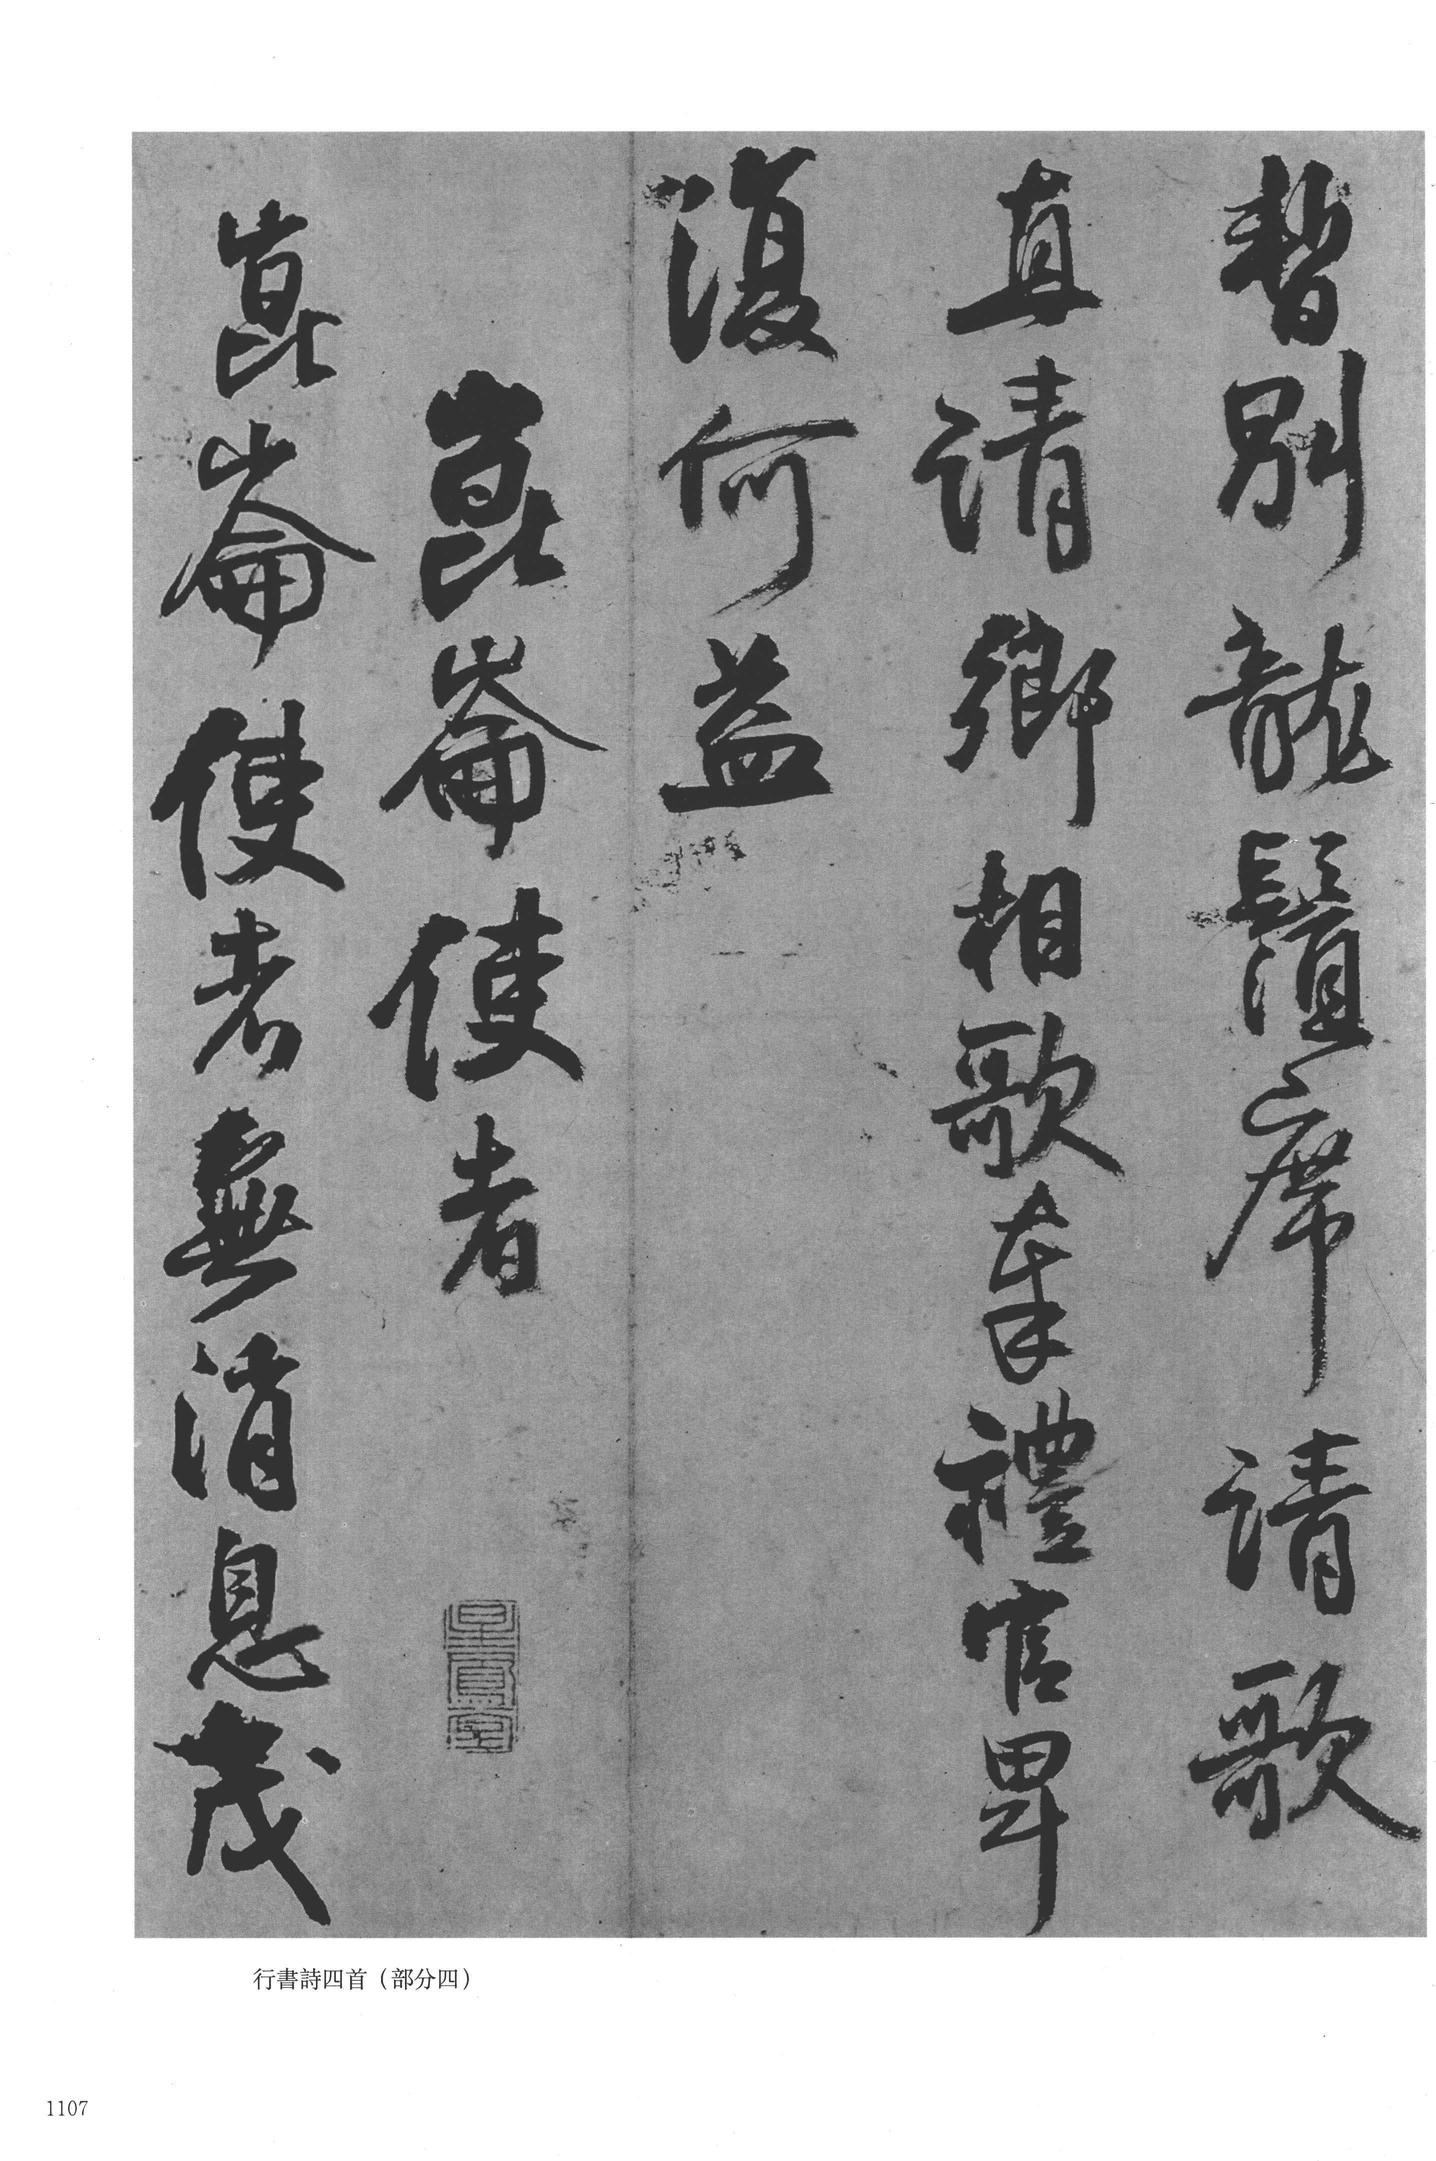 暫別龍鬚席請歌
直請卿相歌奉禮官卑
復何益
崑崙使者
崑崙使者無消息茂
行書詩四首（部分四）
1107